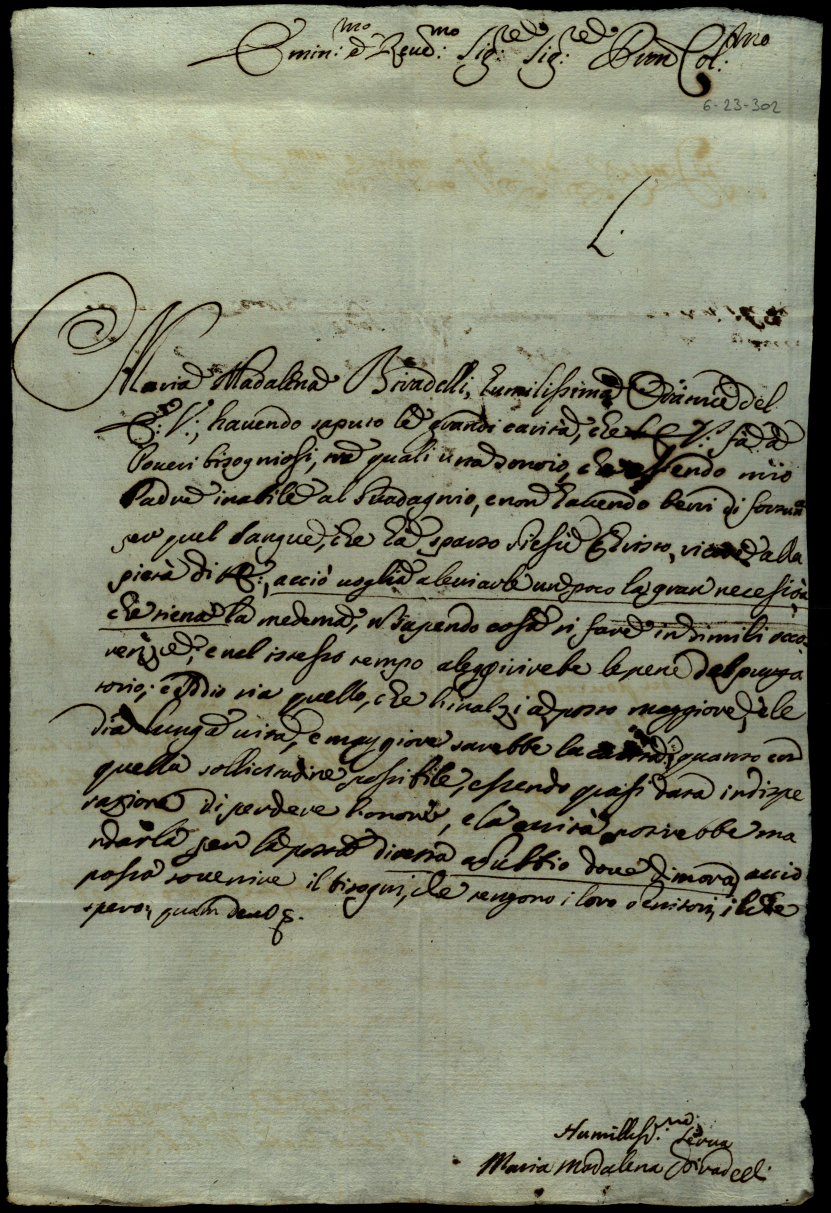 Emin:mo e Reve:mo Sig:re Sig:re Pron Col:mo
6-23-302
L.
Maria Madalena Bivadelli, humilissima Oratrice del
E: V:, havendo saputo le grandi carità, che V: fà à
Poveri bisogniosi, tra quali una sonoio, che essendo mio
Padre inabile al Guadagnio, e non havendo beni di fortuna
per quel Sangue, che hà sparso Giesù Christo, alla
pietà di acciò voglia aleviarle un poco la gran necesità
che tiene la medema, sapendo cosa si fare in simili occo
renze, e nel istesso tempo alegirirebe le pene del purga
torio; e Iddio sia quello, che linalzi a posto maggiore, e le
dia lunga vita, e maggiore sarebbe la carità, quanto con
quella sollicitudine possibile, essendo quasi data in dispe
razione di perdere honore, e la carità potrebbe ma
ndarla per la posta diretta a Gubbio dove dimora, acciò
possa sovenire il bisogni, che tengono i loro, il che
spero, quam Deus
Humilliss:ma Serva
Maria Madalena